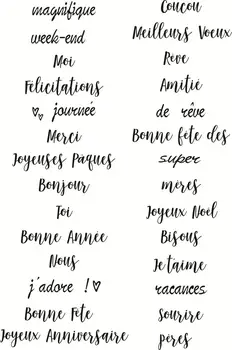 magnifique
week-end
Moi
Félicitations
journée
Merci
Joyeuses Pâques
Bonjour
Toi
Bonne Année
Nous
j'adore !
Bonne Fête
Joyeux Anniversaire
Coucou
Meilleurs Voeux
Rêve
Amitié
de rêve
Bonne fête des
super
mères
Joyeux Noël
Bisous
Je t'aime
vacances
sourire
pères